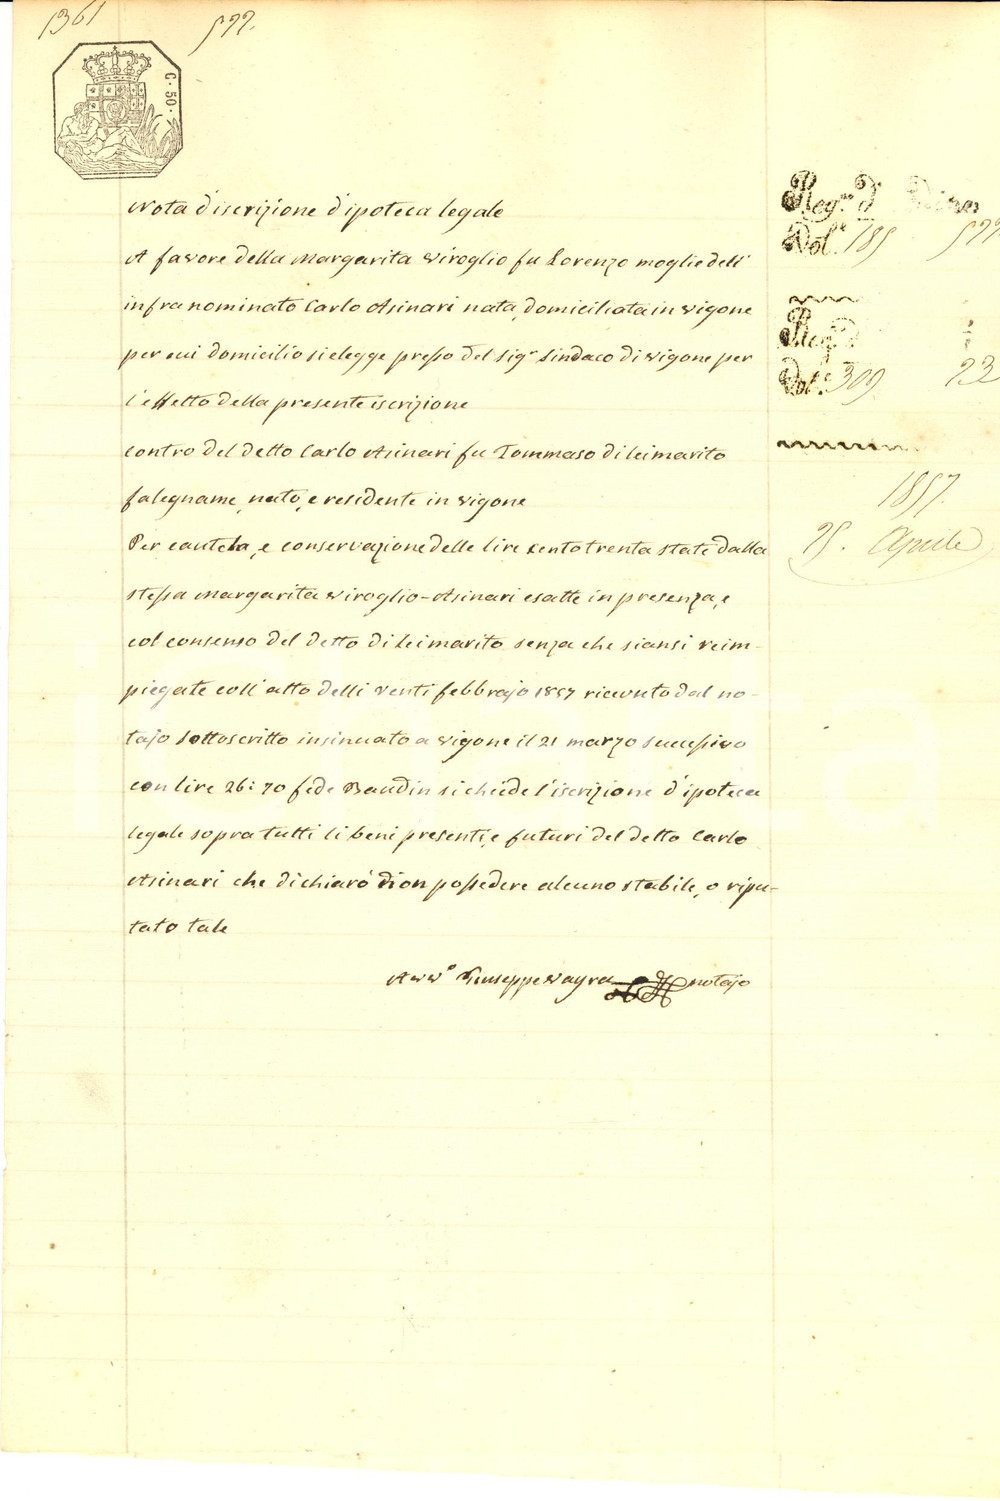 1361 577.
C. 50.
Nota d'iscrizione d'ipoteca legale
A favore della Margarita Viroglio fu Lorenzo moglie dell'
infra nominato Carlo Asinari nata, domiciliata in Vigone
per cui domicilio si elegge presso del sigr. Sindaco di Vigone per
l'effetto della presente iscrizione
contro del detto Carlo Asinari fu Tommaso di lei marito
falegname, nato, e residente in Vigone
Per cautela, e conservazione delle lire cento trenta state dalla
stessa Margarita Viroglio-Asinari esatte in presenza, e
col consenso del detto di lei marito senza che siansi reim-
piegate coll'atto delli venti febbrajo 1857 ricevuto dal no-
tajo sottoscritto insinuato a Vigone il 21 marzo successivo
con lire 26: 70 fede Baudin si chiede l'iscrizione d'ipoteca
legale sopra tutti li beni presenti, e futuri del detto Carlo
Asinari che dichiarò di non possedere alcuno stabile, o ripu-
tato tale
Avvo. Giuseppe Vayra notajo
Reg.° d'
Vol.e 185 577
Reg.° d'
Vol.e 309 23
1857.
25. Aprile